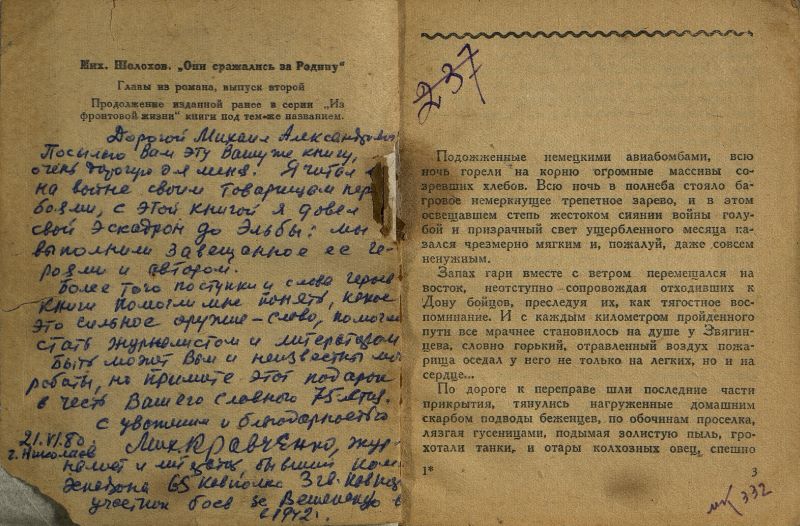 Мих. Шолохов. „Они сражались за Родину"
Главы из романа, выпуск второй
Продолжение изданной ранее в серии „Из
фронтовой жизни" книги под тем-же названием.
Дорогой Михаил Александрович
Посылаю Вам эту Вашу же книгу,
очень дорогую для меня. Я читал
на войне своим товарищам пер
боями, с этой книгой я довел
свой эскадрон до Эльбы: мы
выполнили завещанное ее ге-
роями и автором.
Более того поступки и слова героев
книги помогли мне понять, какое
это сильное оружие – слово, помогли
стать журналистом и литератором
Быть может Вам и неизвестны мои
работы, но примите этот подарок
в честь Вашего славного 75-летия.
С уважением и благодарностью
21.VI.80.
г. Николаев
Мих. Кравченко, жур-
налист и бывший ком
эскадрона 65 кавполка 3 гв. кавдив
участник боев за Вешенскую в
1942 г.
237
Подожженные немецкими авиабомбами, всю
ночь горели на корню огромные массивы со-
зревших хлебов. Всю ночь в полнеба стояло ба-
гровое немеркнущее трепетное зарево, и в этом
освещавшем степь жестоком сиянии войны голу-
бой и призрачный свет ущербленного месяца ка-
зался чрезмерно мягким и, пожалуй, даже совсем
ненужным.
Запах гари вместе с ветром перемещался на
восток, неотступно сопровождая отходивших к
Дону бойцов, преследуя их, как тягостное вос-
поминание. И с каждым километром пройденного
пути все мрачнее становилось на душе у Звягин-
цева, словно горький, отравленный воздух пожа-
рища оседал у него не только на легких, но и на
сердце...
По дороге к переправе шли последние части
прикрытия, тянулись нагруженные домашним
скарбом подводы беженцев, по обочинам проселка,
лязгая гусеницами, подымая золистую пыль, гро-
хотали танки, и отары колхозных овец, спешно
1* 3
мк 332